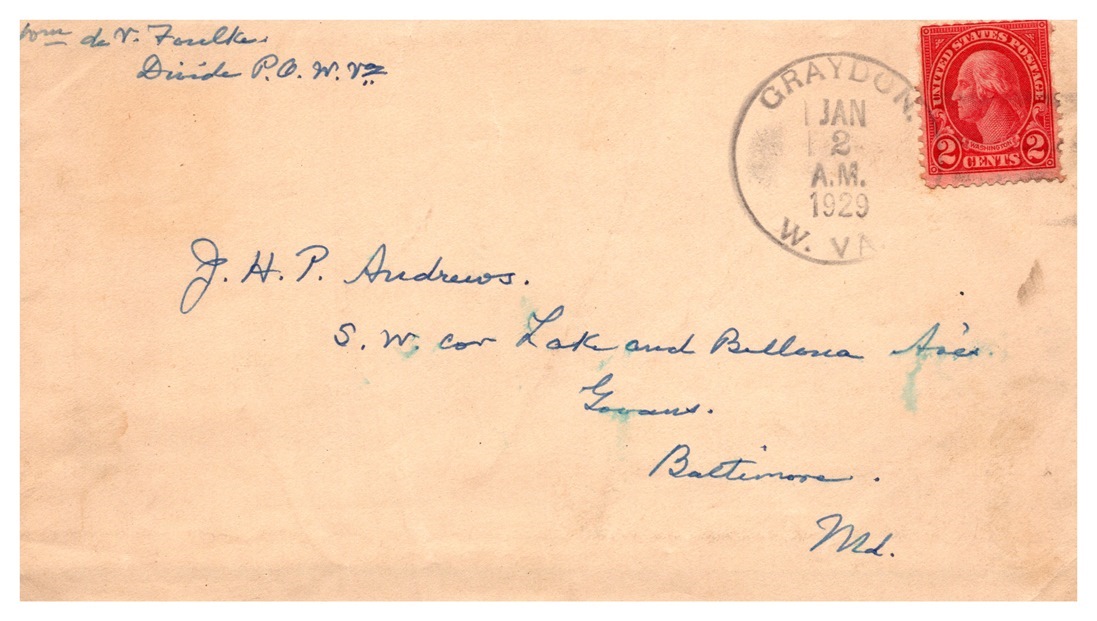 Wm de V. Foulke.
Divide P.O. W. Va
GRAYDON.
JAN
2
A.M.
1929
W. VA.
UNITED STATES POSTAGE
WASHINGTON
2 CENTS 2
J. H. P. Andrews.
S. W. cor Lake and Bellona Aves.
Govans.
Baltimore.
Md.